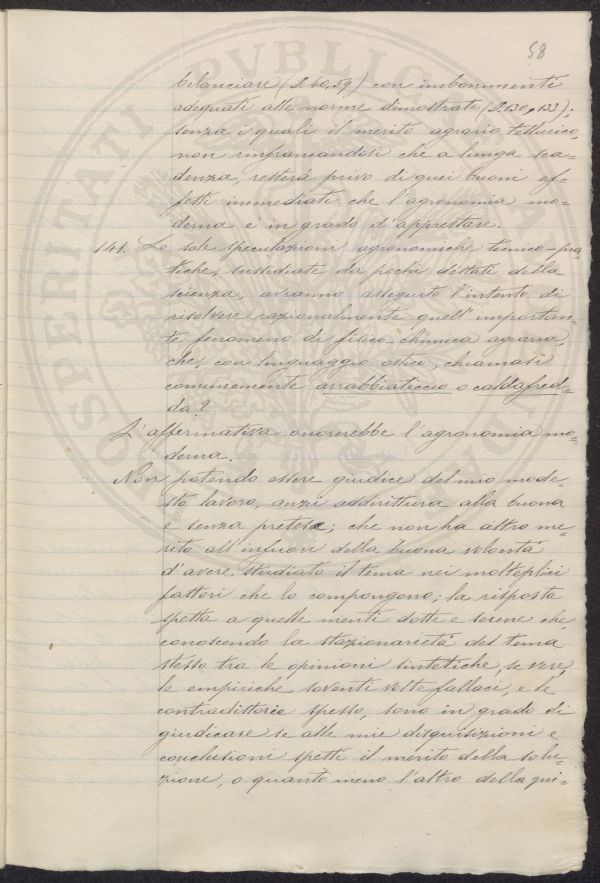 58
bilanciare (§. 40, 59) con imbonimenti
adeguati alle norme dimostrate (§. 130, 133);
senza i quali il merito agrario tellurico,
non rinfrancandosi che a lunga sca-
denza, resterà privo di quei buoni ef-
fetti immediati che l'agronomia mo-
derna è in grado d'apprestare.
141. Le sole speculazioni agronomiche tecnico-pra-
tiche, sussidiate da pochi dettati della
scienza, avranno asseguito l'intento di
risolvere razionalmente quell'importan-
te fenomeno di fisico-chimica agraria,
che, con linguaggio ostico, chiamasi
comunemente arrabbiaticcio o caldafred-
da?
L'affermativa onorerebbe l'agronomia mo-
derna.
Non potendo essere giudice del mio mode-
sto lavoro, anzi addirittura alla buona
e senza pretese; che non ha altro me-
rito all'infuori della buona volontà
d'avere studiato il tema nei molteplici
fattori che lo compongono; la risposta
spetta a quelle menti dotte e serene che,
conoscendo la stazionarietà del tema
stesso tra le opinioni sintetiche, se vere,
le empiriche soventi volte fallaci, e le
contradittorie spesso, sono in grado di
giudicare se alle mie disquisizioni e
conclusioni spetti il merito della solu-
zione, o quanto meno l'altro della qui-
PVBLICA
PROSPERITATI